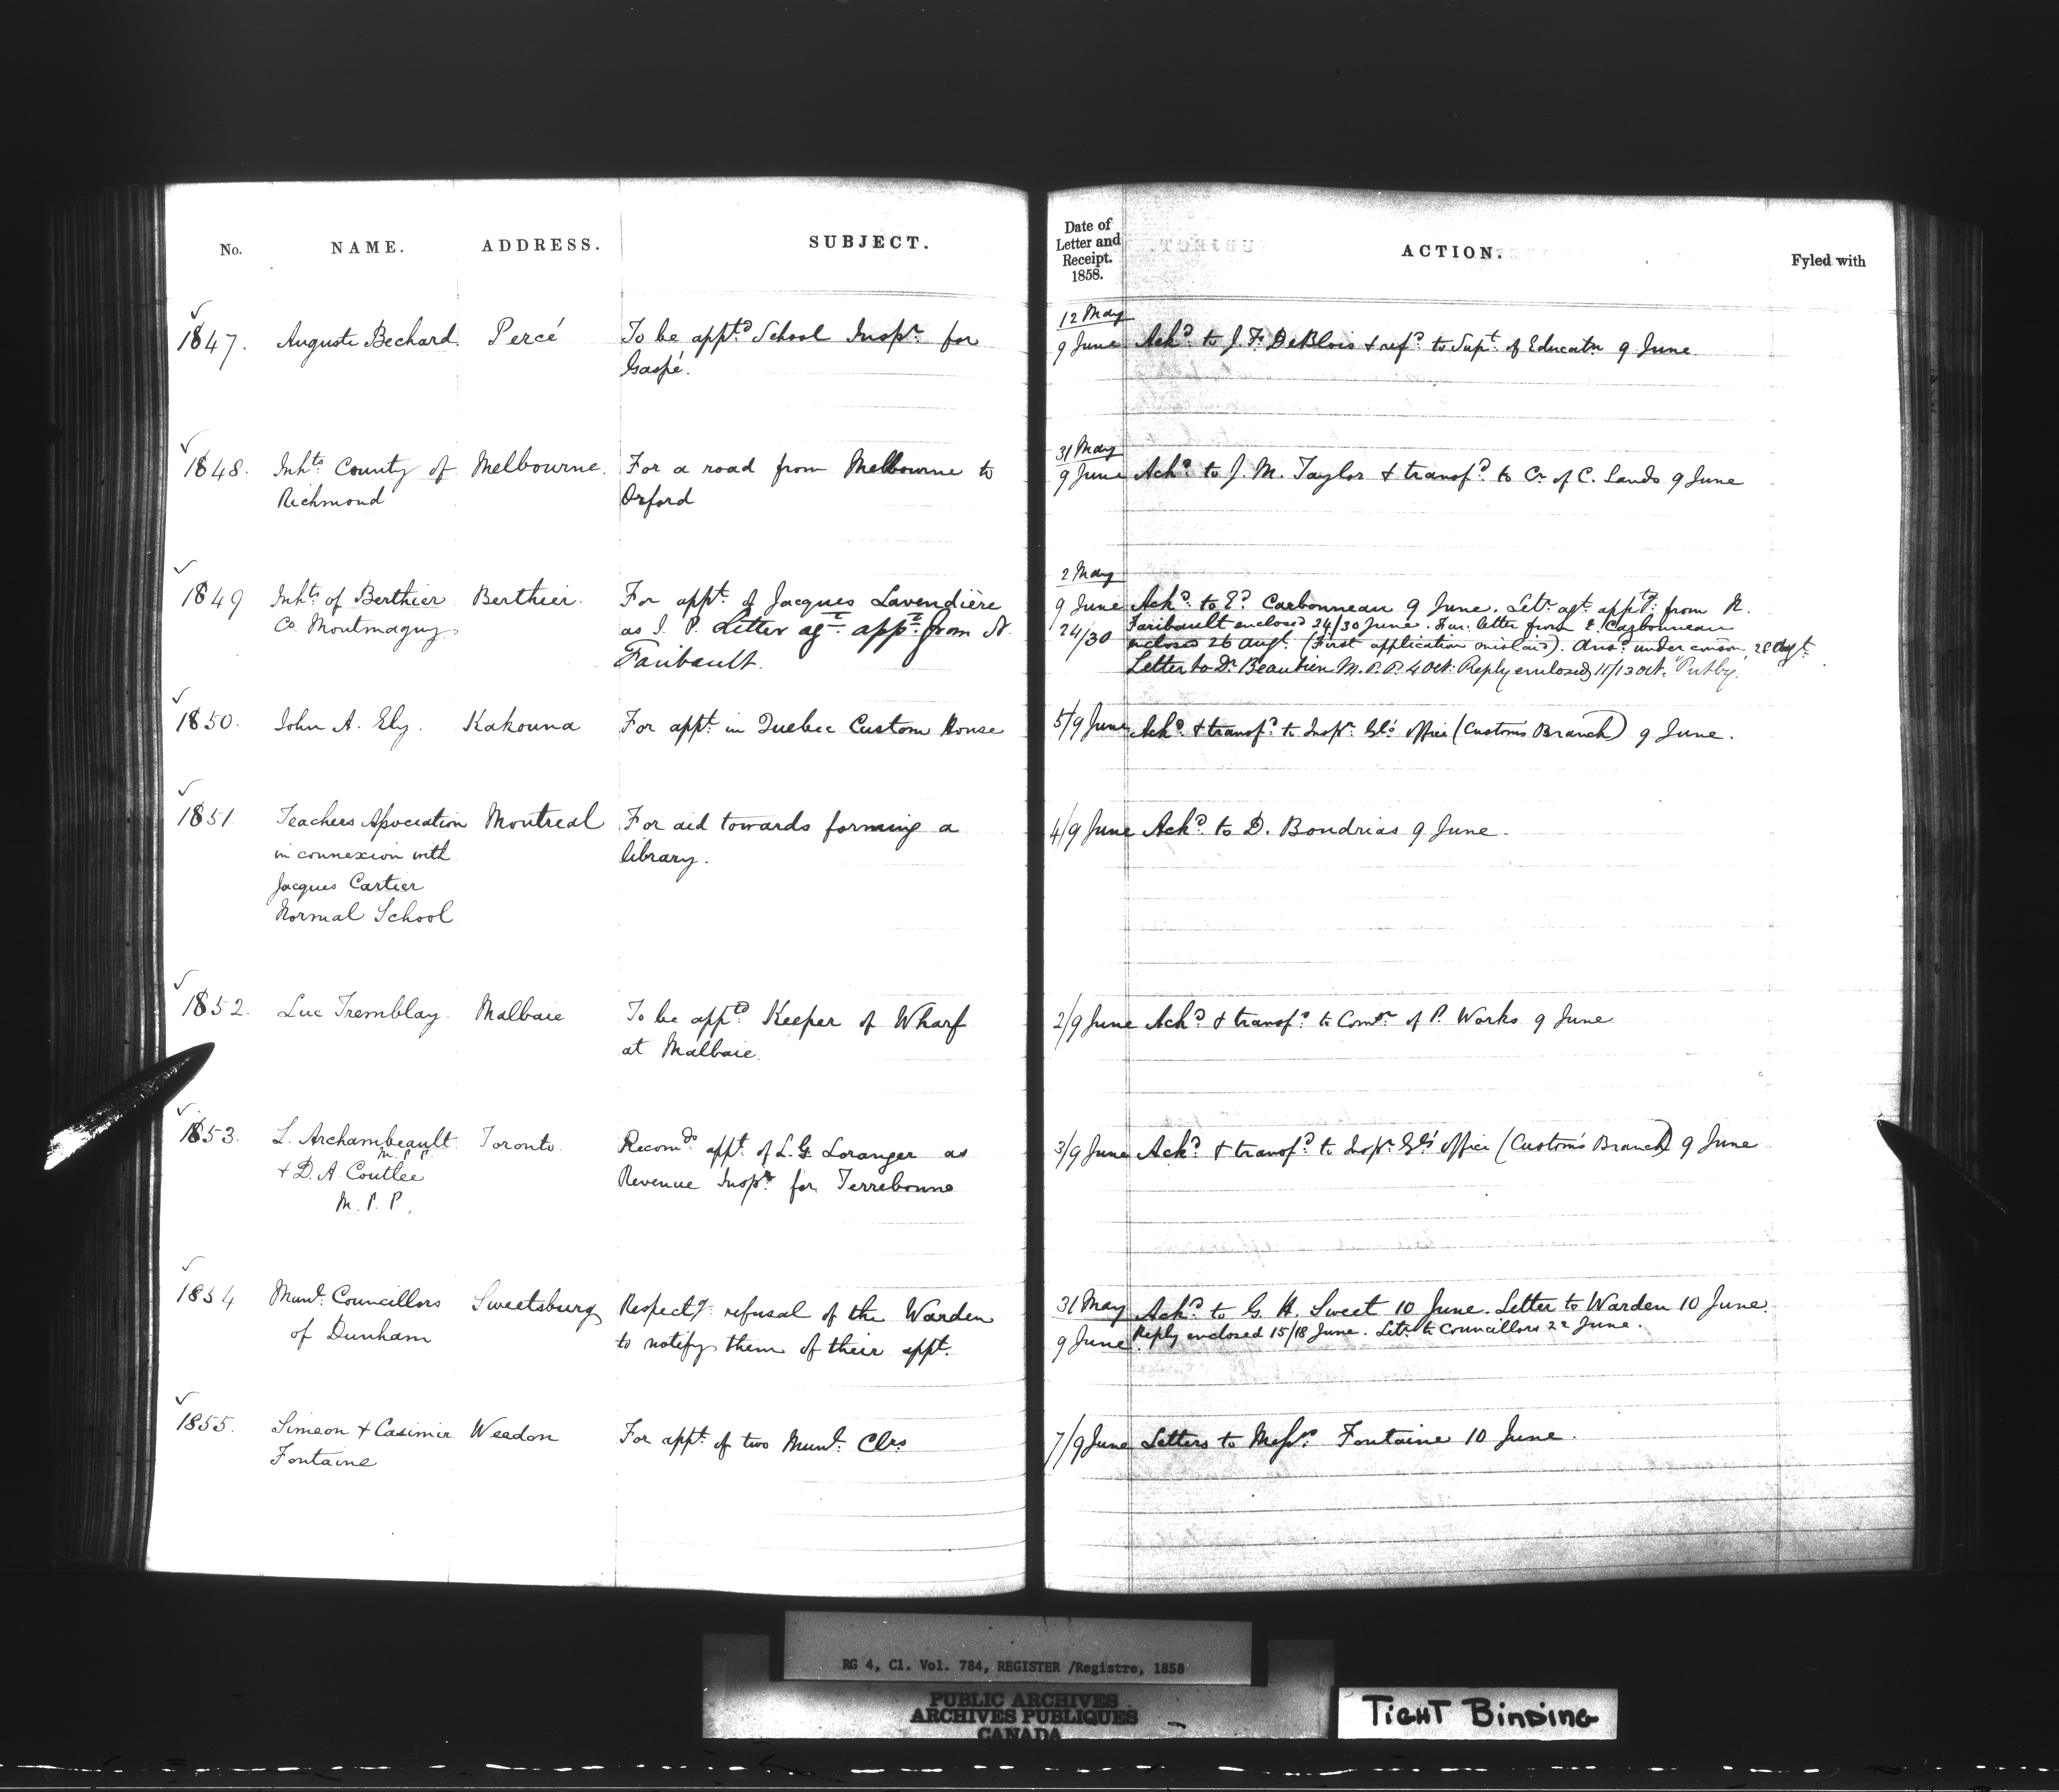 No. NAME. ADDRESS. SUBJECT. Date of Letter and Receipt. 1858. ACTION. Fyled with
1847. Auguste Bechard. Percé To be appt.d School Inspr. for
Gaspé.
12 May
9 June Ackd. to J. F. DeBlois & refd. to Supt. of Educatn 9 June
1848. Inhts. County of Melbourne. For a road from Melbourne to
Richmond Orford
31 May
9 June Ackd. to J. M. Taylor & transfd. to Cr. of C. Lands 9 June
1849 Inhts. of Berthier Berthier. For appt. of Jacques Lavendière
Co. Montmagny. as J. P. Letter agt. appt. from N.
Faribault.
2 May
9 June Ackd. to Ed. Carbonneau 9 June. Letr. agt. apptg. from N.
24/30 Faribault enclosed 24/30 June. Fur. letter from E. Carbonneau
enclosed 26 Augt. (First application mislaid). Ansd. under conson. 28 Augt.
Letter to Dr. Beaubien M.P.P. 4 Oct. Reply enclosed 11/13 Oct. "Put by.
1850. John A. Ely. Kakouna For appt. in Quebec Custom House
5/9 June Ackd. & transfd. to Inspr. Gl's office (Customs Branch) 9 June.
1851 Teachers Association Montreal For aid towards forming a
in connexion with library.
Jacques Cartier
Normal School
4/9 June Ackd. to D. Boudrias 9 June.
1852. Luc Tremblay. Malbaie To be apptd. Keeper of Wharf
at Malbaie.
2/9 June Ackd. & transfd. to Comr. of P. Works 9 June
1853. L. Archambeault Toronto. Recomds. appt. of L. G. Loranger as
M.P.P.
& D. A. Coutlee Revenue Inspr. for Terrebonne
M. P. P.
3/9 June Ackd. & transfd. to Inspr. Gl's office (Custom's Branch) 9 June
1854 Munl. Councillors Sweetsburg Respectg. refusal of the Warden
of Dunham to notify them of their appt.
31 May Ackd. to G. H. Sweet 10 June. Letter to Warden 10 June.
9 June Reply enclosed 15/18 June. Letr. to Councillors 22 June.
1855. Simeon & Casimir Weedon For appt. of two Munl. Clrs
Fontaine
7/9 June Letters to Messrs. Fontaine 10 June.
RG 4, C1. Vol. 784, REGISTER /Registre, 1858
PUBLIC ARCHIVES
ARCHIVES PUBLIQUES
CANADA
TIGHT BINDING